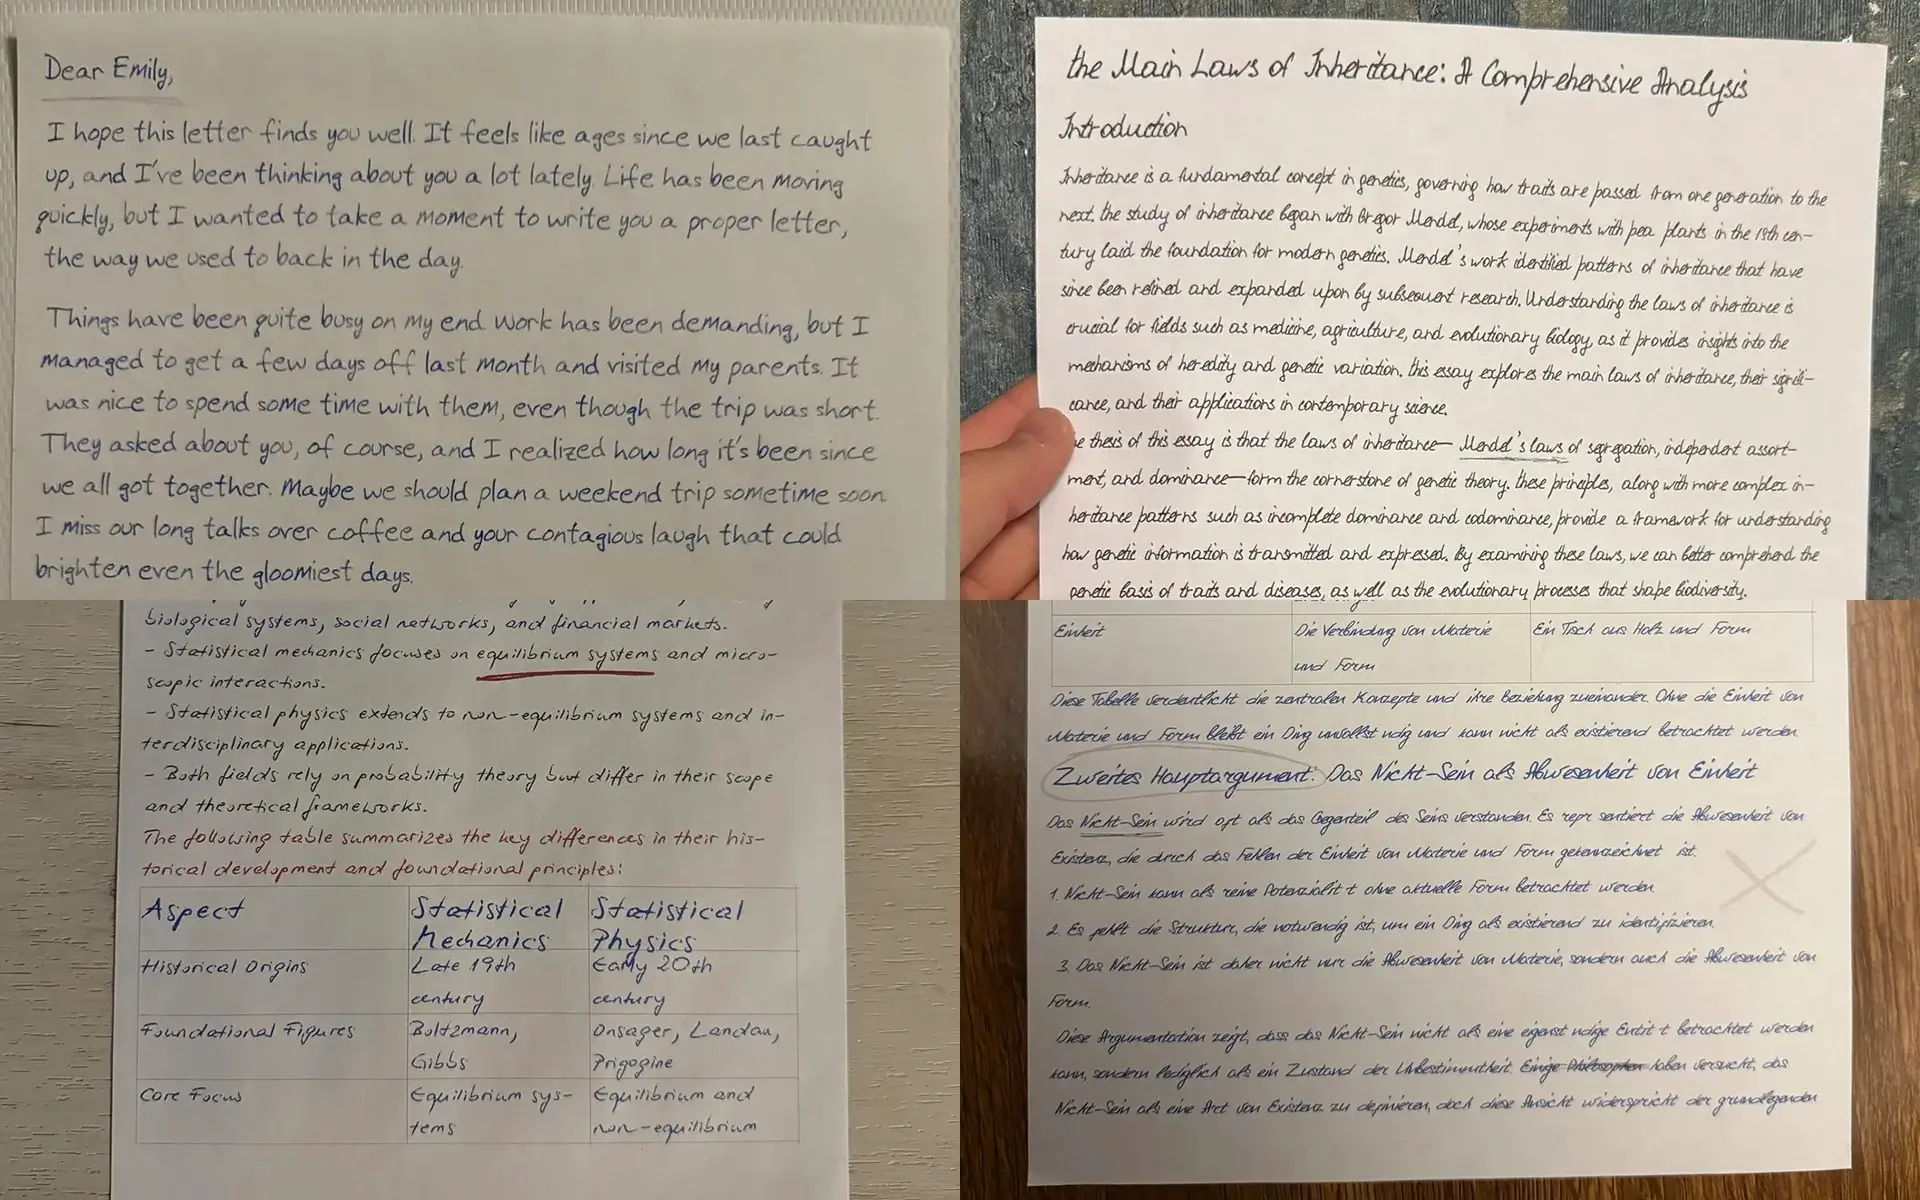 Dear Emily,
I hope this letter finds you well. It feels like ages since we last caught
up, and I've been thinking about you a lot lately. Life has been moving
quickly, but I wanted to take a moment to write you a proper letter,
the way we used to back in the day.
Things have been quite busy on my end. Work has been demanding, but I
managed to get a few days off last month and visited my parents. It
was nice to spend some time with them, even though the trip was short.
They asked about you, of course, and I realized how long it's been since
we all got together. Maybe we should plan a weekend trip sometime soon.
I miss our long talks over coffee and your contagious laugh that could
brighten even the gloomiest days.
the Main Laws of Inheritance: A Comprehensive Analysis
Introduction
Inheritance is a fundamental concept in genetics, governing how traits are passed from one generation to the
next. the study of inheritance began with Gregor Mendel, whose experiments with pea plants in the 19th cen-
tury laid the foundation for modern genetics. Mendel's work identified patterns of inheritance that have
since been refined and expanded upon by subsequent research. Understanding the laws of inheritance is
crucial for fields such as medicine, agriculture, and evolutionary biology, as it provides insights into the
mechanisms of heredity and genetic variation. this essay explores the main laws of inheritance, their signifi-
cance, and their applications in contemporary science.
e thesis of this essay is that the laws of inheritance—Mendel's laws of segregation, independent assort-
ment, and dominance—form the cornerstone of genetic theory. these principles, along with more complex in-
heritance patterns such as incomplete dominance and codominance, provide a framework for understanding
how genetic information is transmitted and expressed. By examining these laws, we can better comprehend the
genetic basis of traits and diseases, as well as the evolutionary processes that shape biodiversity.
biological systems, social networks, and financial markets.
- Statistical mechanics focuses on equilibrium systems and micro-
scopic interactions.
- Statistical physics extends to non-equilibrium systems and in-
terdisciplinary applications.
- Both fields rely on probability theory but differ in their scope
and theoretical frameworks.
The following table summarizes the key differences in their his-
torical development and foundational principles:
Aspect Statistical Statistical
Mechanics Physics
Historical Origins Late 19th Early 20th
century century
Foundational Figures Boltzmann, Onsager, Landau,
Gibbs Prigogine
Core Focus Equilibrium sys- Equilibrium and
tems non-equilibrium
Einheit Die Verbindung von Materie Ein Tisch aus Holz und Form
und Form
Diese Tabelle verdeutlicht die zentralen Konzepte und ihre Beziehung zueinander. Ohne die Einheit von
Materie und Form bleibt ein Ding unvollst ndig und kann nicht als existierend betrachtet werden.
Zweites Hauptargument: Das Nicht-Sein als Abwesenheit von Einheit
Das Nicht-Sein wird oft als das Gegenteil des Seins verstanden. Es repr sentiert die Abwesenheit von
Existenz, die durch das Fehlen der Einheit von Materie und Form gekennzeichnet ist.
1. Nicht-Sein kann als reine Potenzialit t ohne aktuelle Form betrachtet werden.
2. Es fehlt die Struktur, die notwendig ist, um ein Ding als existierend zu identifizieren.
3. Das Nicht-Sein ist daher nicht nur die Abwesenheit von Materie, sondern auch die Abwesenheit von
Form.
Diese Argumentation zeigt, dass das Nicht-Sein nicht als eine eigenst ndige Entit t betrachtet werden
kann, sondern lediglich als ein Zustand der Unbestimmtheit. Einige Philosophen haben versucht, das
Nicht-Sein als eine Art von Existenz zu definieren, doch diese Ansicht widerspricht der grundlegenden